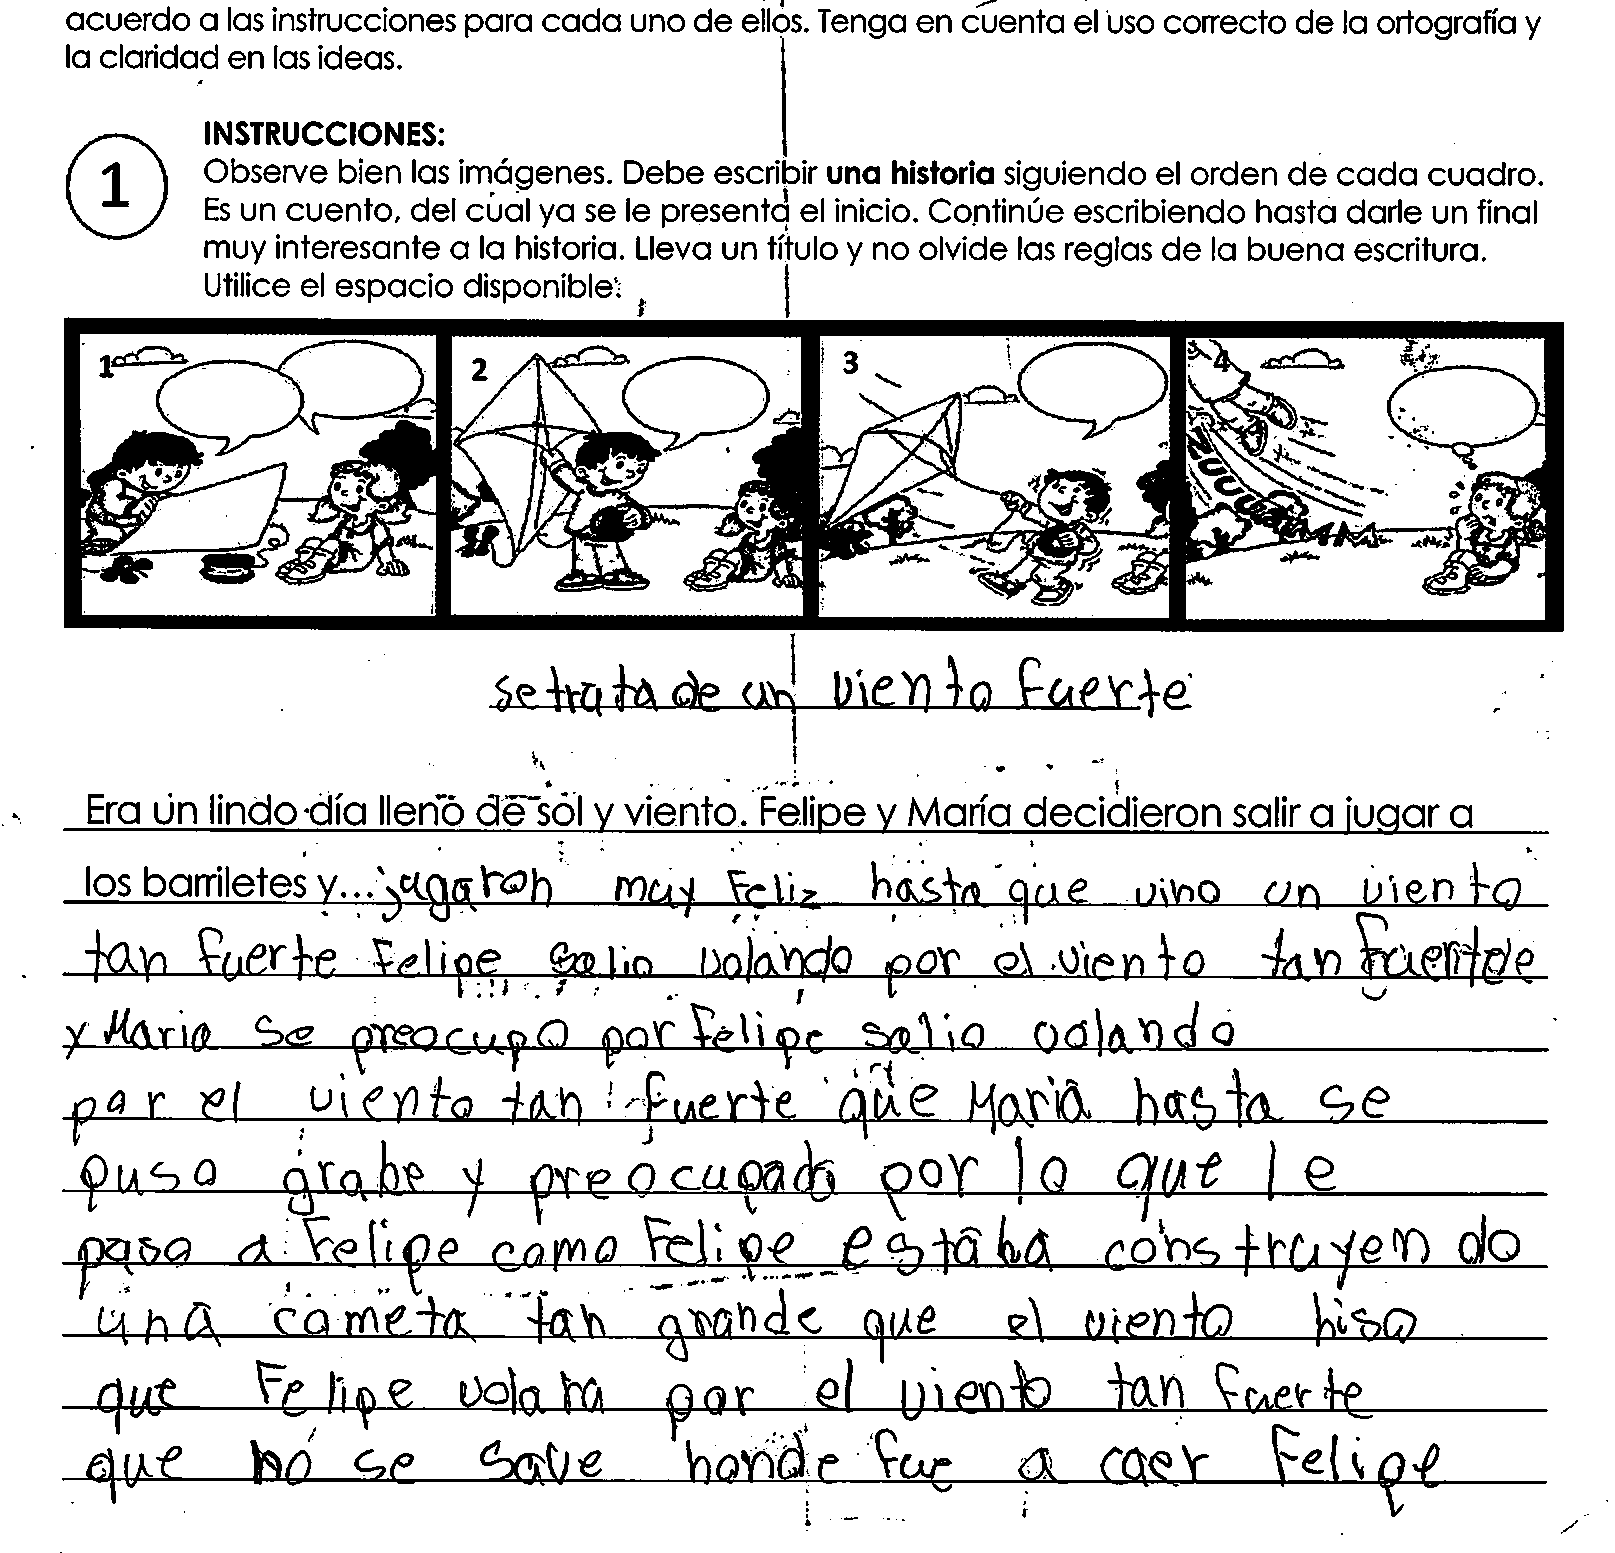 acuerdo a las instrucciones para cada uno de ellos. Tenga en cuenta el uso correcto de la ortografía y
la claridad en las ideas.
INSTRUCCIONES:
1
Observe bien las imágenes. Debe escribir una historia siguiendo el orden de cada cuadro.
Es un cuento, del cual ya se le presenta el inicio. Continúe escribiendo hasta darle un final
muy interesante a la historia. Lleva un título y no olvide las reglas de la buena escritura.
Utilice el espacio disponible.
1 2 3 4
ZUUUUMMM
se trata de un viento fuerte
Era un lindo día lleno de sol y viento. Felipe y María decidieron salir a jugar a
los barriletes y... jugaron muy Feliz hasta que vino un viento
tan fuerte Felipe salio volando por el viento tan
y Maria se preocupo por Felipe salio volando
por el viento tan fuerte que Maria hasta se
puso grabe y preocupado por lo que le
paso a Felipe como Felipe estaba construyendo
una cometa tan grande que el viento hiso
que Felipe volara por el viento tan fuerte
que no se save honde fue a caer Felipe